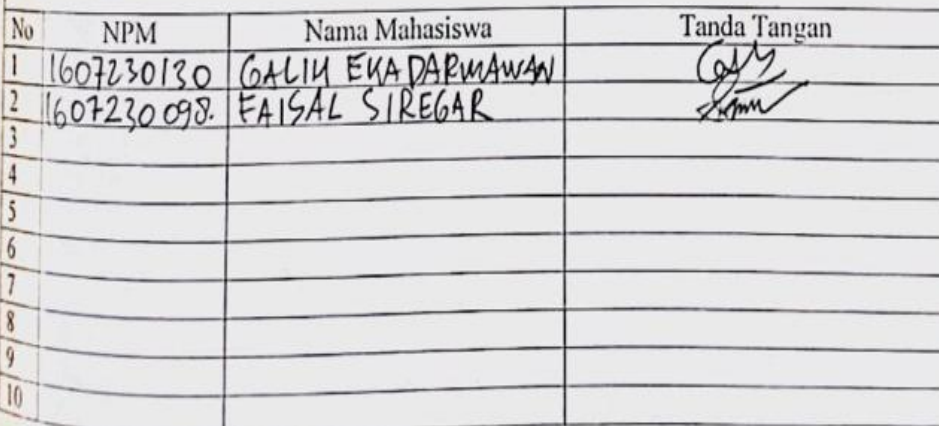 No NPM Nama Mahasiswa Tanda Tangan
1 1607230130 GALIH EKA DARMAWAN
2 1607230098. FAISAL SIREGAR
3
4
5
6
7
8
9
10